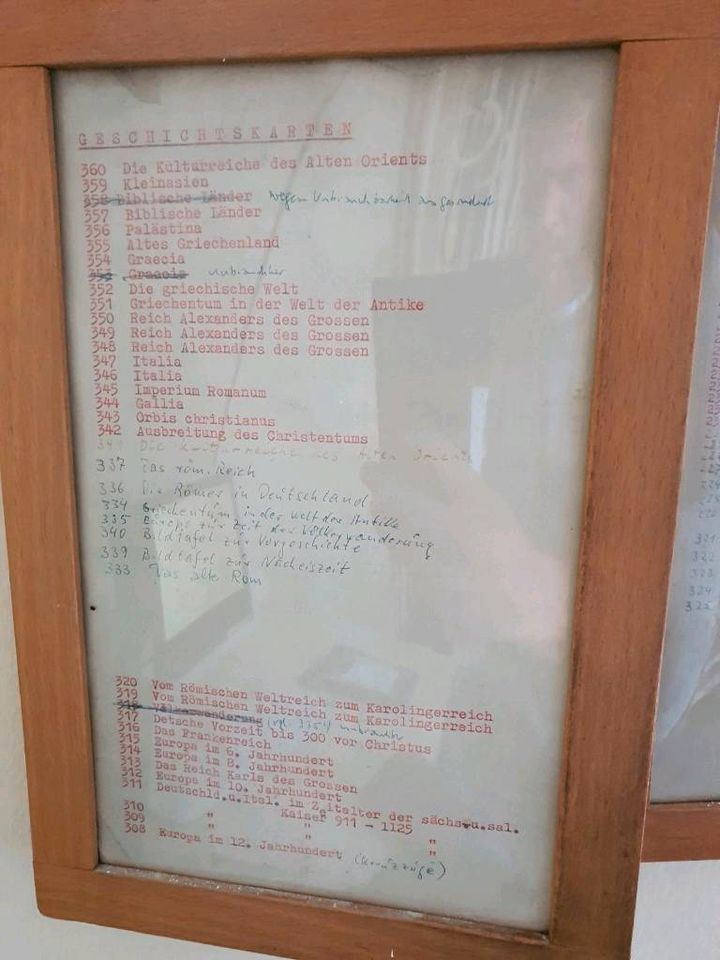 GESCHICHTSKARTEN
360 Die Kulturreiche des Alten Orients
359 Kleinasien
358 Biblische Länder wegen Unbrauchbarkeit ausgesondert
357 Biblische Länder
356 Palästina
355 Altes Griechenland
354 Graecia
353 Graecia
352 Die griechische Welt
351 Griechentum in der Welt der Antike
350 Reich Alexanders des Grossen
349 Reich Alexanders des Grossen
348 Reich Alexanders des Grossen
347 Italia
346 Italia
345 Imperium Romanum
344 Gallia
343 Orbis christianus
342 Ausbreitung des Christentums
Die Kulturreiche des Alten Orients
337 Das röm. Reich
336 Die Römer in Deutschland
334 Griechentum in der Welt der Antike
335 Europa zur Zeit der Völkerwanderung
340 Bildtafel zur Vorgeschichte
339 Bildtafel zur
333 Das alte Rom
320 Vom Römischen Weltreich zum Karolingerreich
319 Vom Römischen Weltreich zum Karolingerreich
318 Völkerwanderung
317 Detsche Vorzeit bis 300 vor Christus
316 Das Frankenreich
315 Europa im 6. Jahrhundert
314 Europa im 8. Jahrhundert
313 Das Reich Karls des Grossen
312 Europa im 10. Jahrhundert
311 Deutschld.u.Ital. im Z italter der sächs.u.sal.
Kaiser 911 - 1125
310 " " "
309 " " "
308 Europa im 12. Jahrhundert (Kreuzzüge)
321
322
323
324
325